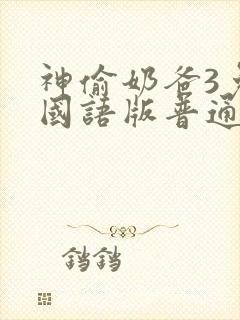 神偷奶爸3
國語版普通
铛铛